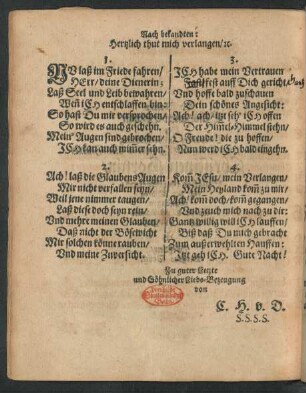 Nach bekandten:
Hertzlich thut mich verlangen/ ꝛc.
1.
NU laß im Friede fahren/
HErr/ deine Dienerin;
Laß Seel und Leib bewahren/
Weñ ICH entschlaffen bin:
So hast Du mir versprochen/
So wird es auch geschehn.
Mein' Augen sind gebrochen/
ICH kan auch nim̃er sehn.
2.
Ach! laß die Glaubens Augen
Mir nicht verfallen seyn/
Weil jene nimmer taugen/
Laß diese doch seyn rein/
Und mehre meinen Glauben/
Daß nicht der Bösewicht
Mir solchen könne rauben/
Und meine Zuversicht.
3.
ICH habe mein Vertrauen
Fest auff Dich gericht/
Und hoffe bald zuschauen
Dein schönes Angesicht:
Ach! ach! itzt seh' ICH offen
Der Him̃el Himmel stehn/
O Freude! die zu hoffen/
Nun werd ICH bald eingehn.
4.
Kom̃ JEsu/ mein Verlangen/
Mein Heyland kom̃ zu mir/
Ach! kom̃ doch/ kom̃ gegangen/
Und zeuch mich nach zu dir:
Gantz willig will ICH lauffen/
Biß daß Du mich gebracht
Zum außerwehlten Hauffen:
Itzt geh ICH. Gute Nacht!
Zu guter Letzte
und Söhnlicher Liebs-Bezeugung
von
C. H. v. D.
S.S.S.S.